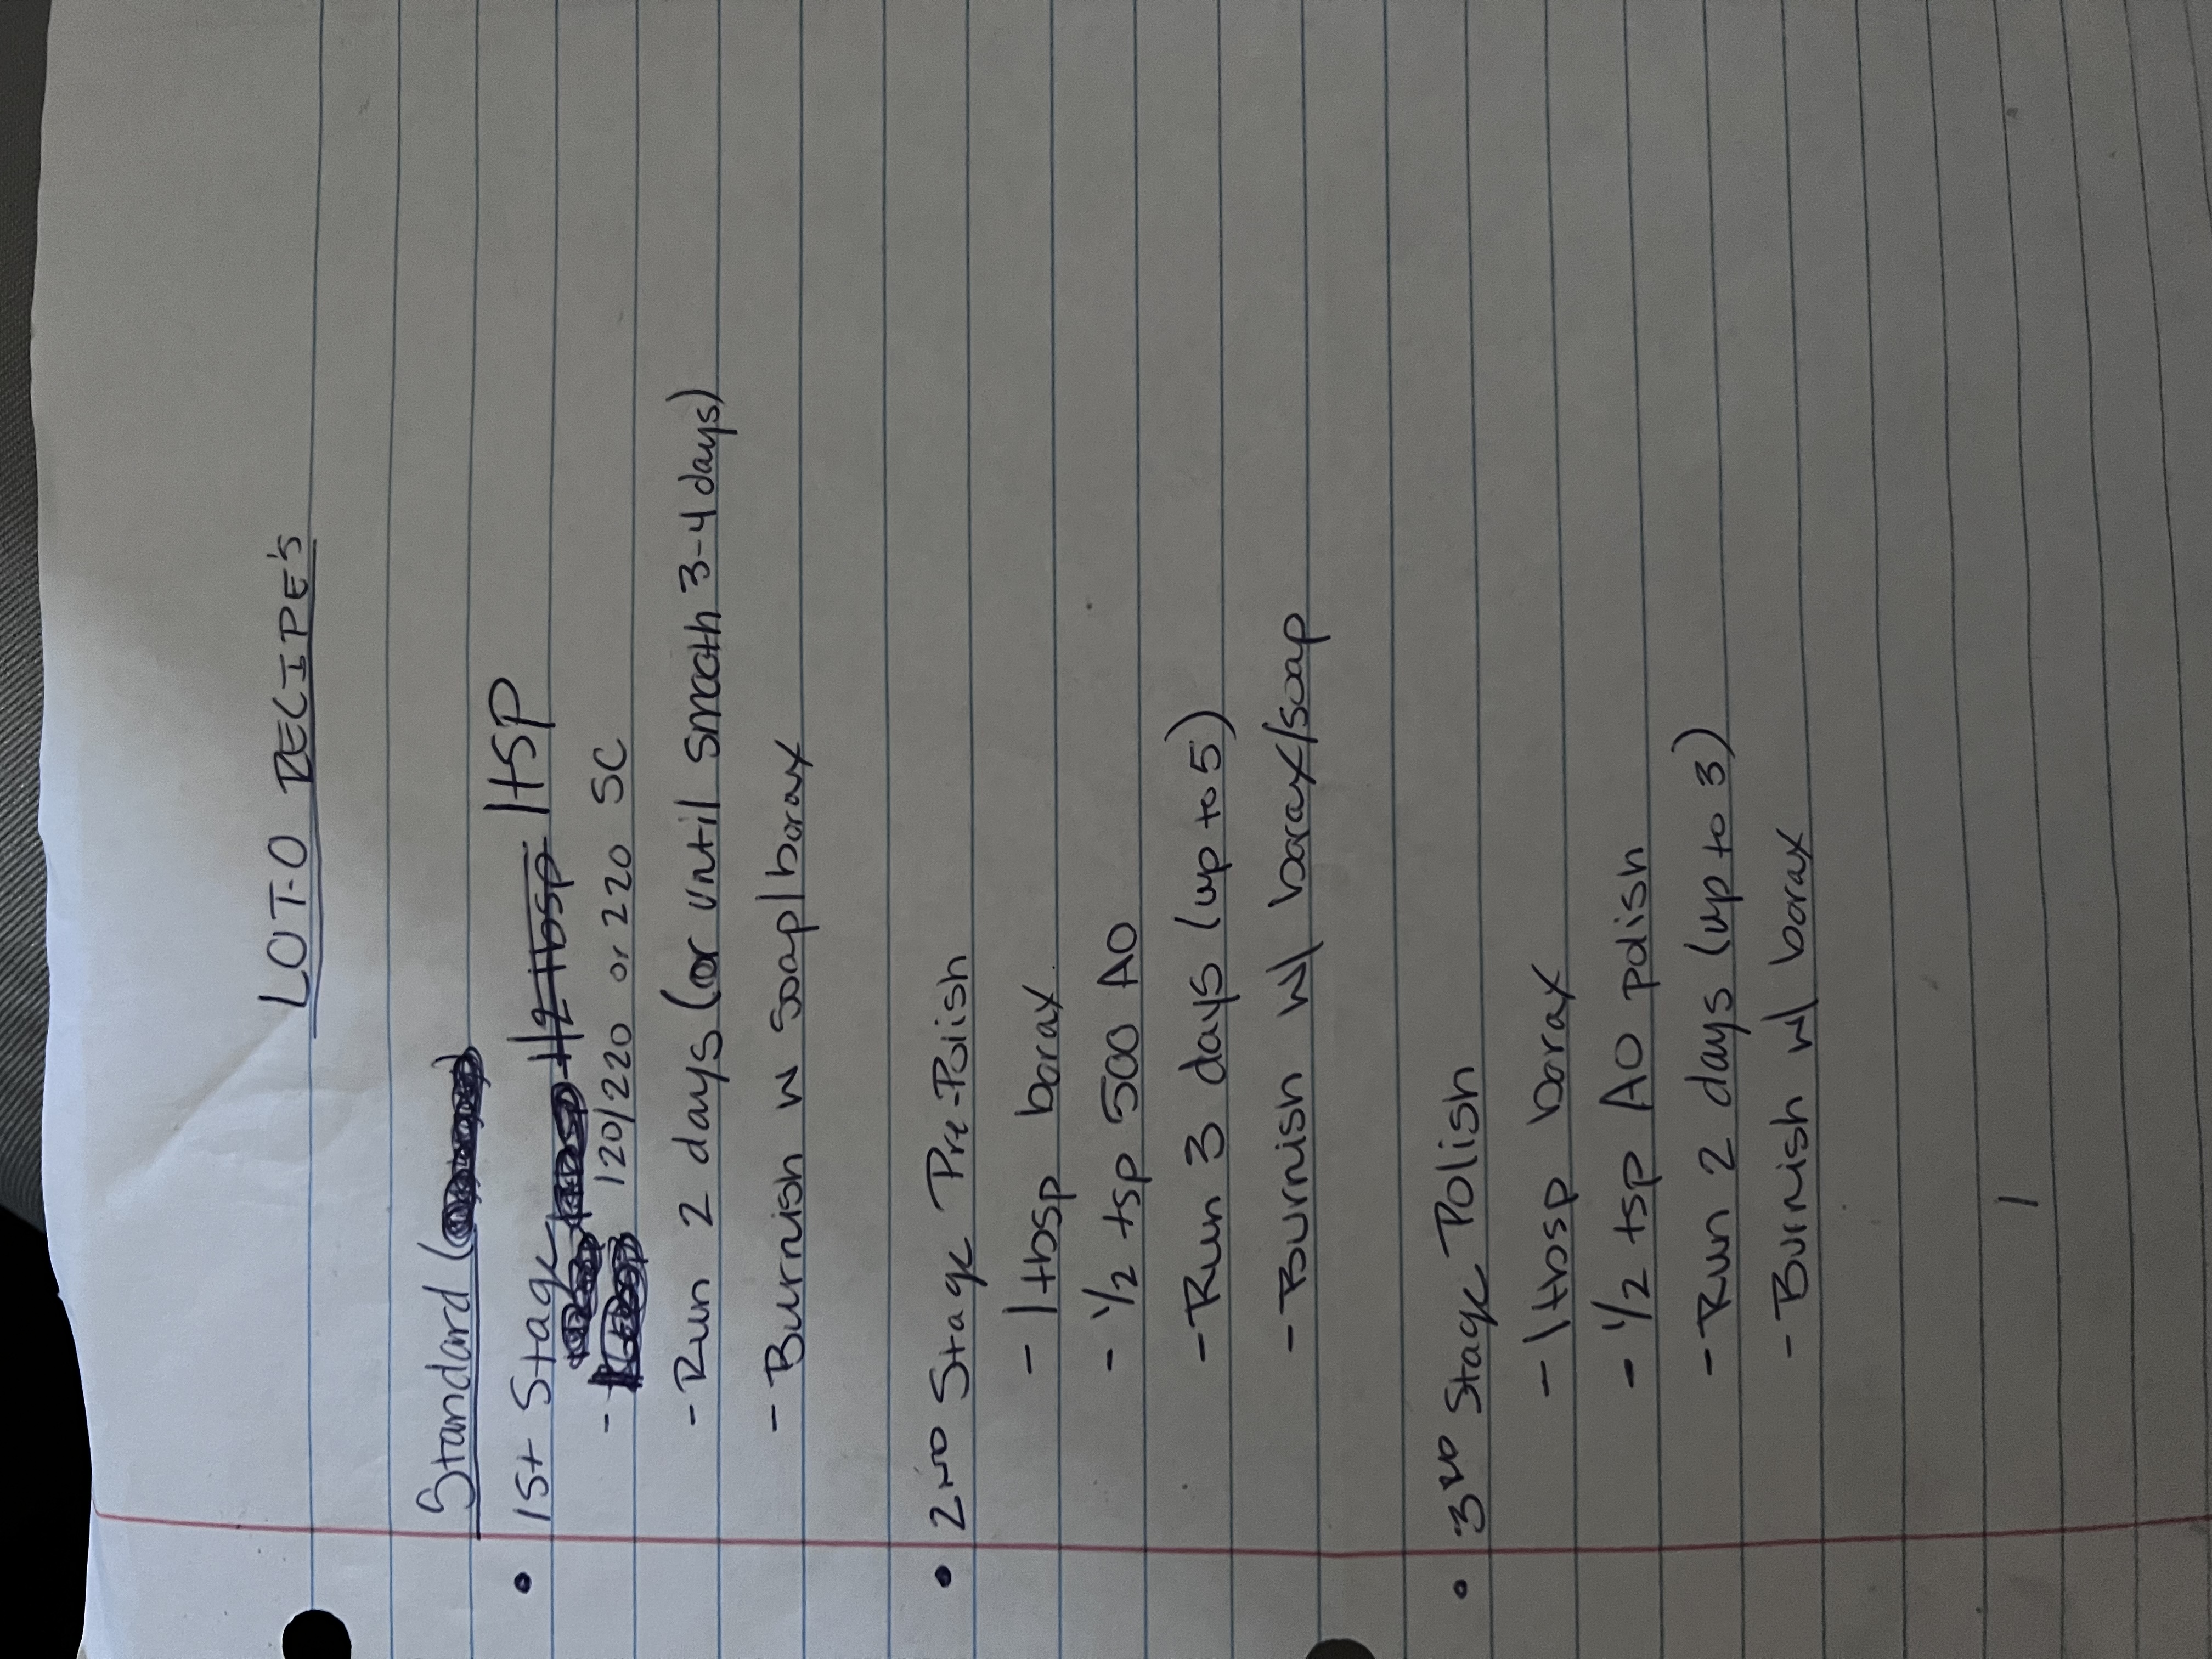 LOT-O RECIPE'S
Standard (
• 1st Stage 1/2 tbsp 1tsp
- 120/220 or 220 SC
- Run 2 days (or until smooth 3-4 days)
- Burnish w soap/borax
• 2ND Stage Pre-Polish
- 1tbsp borax
- 1/2 tsp 500 AO
- Run 3 days (up to 5)
- Burnish w/ borax/soap
• 3RD Stage Polish
- 1tbsp borax
- 1/2 tsp AO polish
- Run 2 days (up to 3)
- Burnish w/ borax